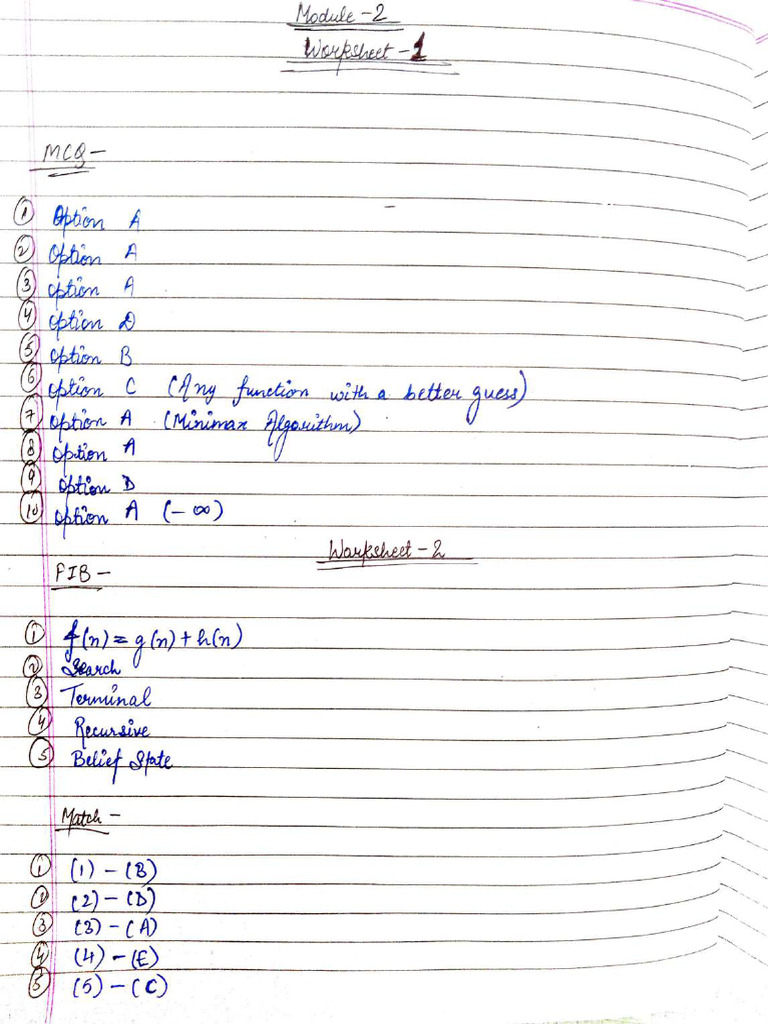 Module - 2
Worksheet - 1
MCQ -
① Option A
② Option A
③ Option A
④ Option D
⑤ Option B
⑥ Option C (Any function with a better guess)
⑦ Option A (Minimax Algorithm)
⑧ Option A
⑨ Option D
⑩ Option A (- ∞)
Worksheet - 2
FIB -
① f(n) = g(n) + h(n)
② Search
③ Terminal
④ Recursive
⑤ Belief State
Match -
① (1) - (B)
② (2) - (D)
③ (3) - (A)
④ (4) - (E)
⑤ (5) - (C)